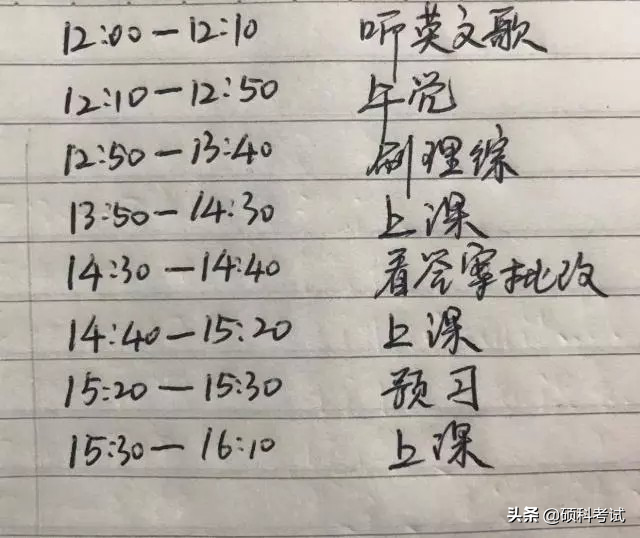 12:00—12:10 听英文歌
12:10—12:50 午觉
12:50—13:40 刷理综
13:50—14:30 上课
14:30—14:40 看答案批改
14:40—15:20 上课
15:20—15:30 预习
15:30—16:10 上课
头条 @硕科考试